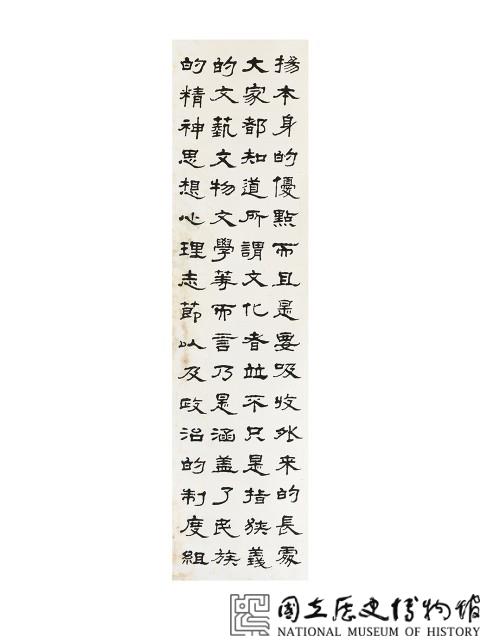 揚本身的優點而且是要吸收外来的長處
大家都知道所謂文化者並不只是指狹義
的文藝文物文學等而言乃是涵盖了民族
的精神思想心理志節以及政治的制度組
國立歷史博物館
NATIONAL MUSEUM OF HISTORY